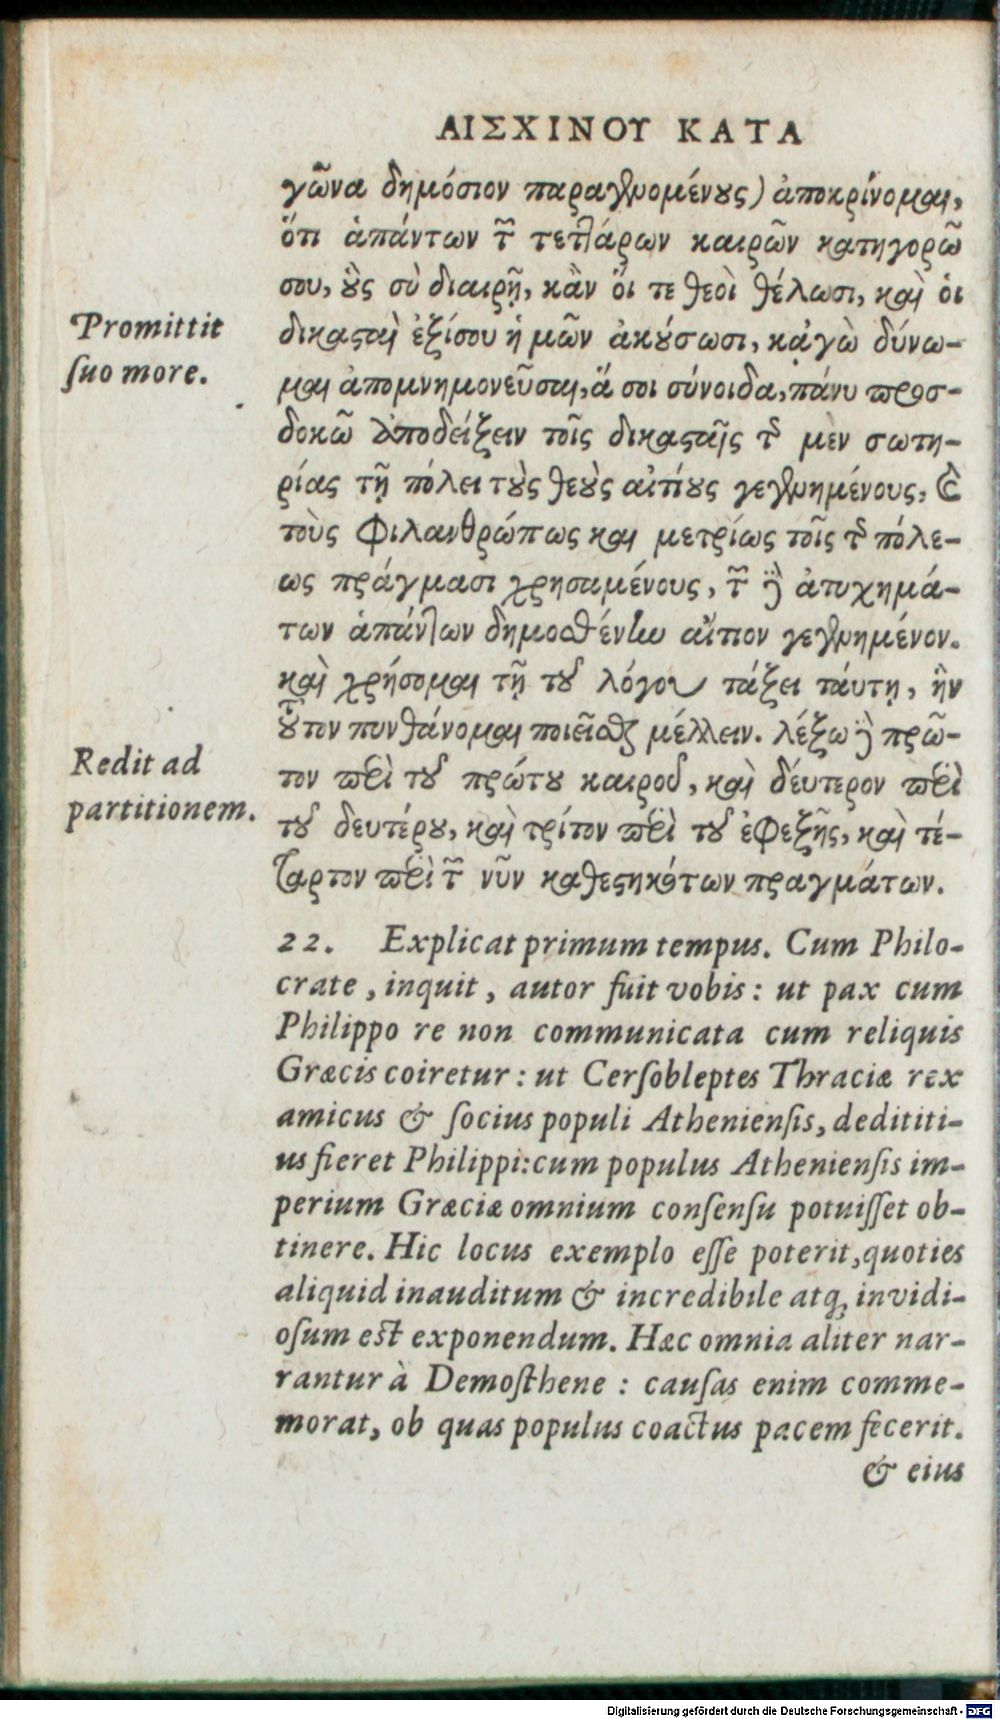 ΑΙΣΧΙΝΟΥ ΚΑΤΑ
γῶνα δημόσιον παραγενομένους) ἀποκρίνομαι,
ὅτι ἁπάντων τῶν τεττάρων καιρῶν κατηγορῶ
σου, οὓς σὺ διαιρῇ, κἂν οἵ τε θεοὶ θέλωσι, καὶ οἱ
Promittit
suo more.
δικασταὶ ἐξίσου ἡμῶν ἀκούσωσι, κἀγὼ δύνω-
μαι ἀπομνημονεῦσαι, ἅ σοι σύνοιδα, πάνυ προσ-
δοκῶ ἀποδείξειν τοῖς δικασταῖς τῆς μὲν σωτη-
ρίας τῇ πόλει τοὺς θεοὺς αἰτίους γεγενημένους, καὶ
τοὺς φιλανθρώπως και μετρίως τοῖς τῆς πόλε-
ως πράγμασι χρησαμένους, τῶν δὲ ἀτυχημά-
των ἁπάντων δημοσθένην αἴτιον γεγενημένον.
καὶ χρήσομαι τῇ τοῦ λόγου τάξει τάυτῃ, ἣν
τοῦτον πυνθάνομαι ποιεῖσθαι μέλλειν. λέξω δὲ πρῶ-
Redit ad
partitionem.
τον περὶ τοῦ πρώτου καιροῦ, καὶ δέυτερον περὶ
τοῦ δευτέρου, καὶ τρίτον περὶ τοῦ ἐφεξῆς, καὶ τέ-
ταρτον περὶ τῶν νῦν καθεστηκότων πραγμάτων.
22. Explicat primum tempus. Cum Philo-
crate, inquit, autor fuit vobis: ut pax cum
Philippo re non communicata cum reliquis
Græcis coiretur: ut Cersobleptes Thraciæ rex
amicus & socius populi Atheniensis, dedititi-
us fieret Philippi: cum populus Atheniensis im-
perium Græciæ omnium consensu potuisset ob-
tinere. Hic locus exemplo esse poterit, quoties
aliquid inauditum & incredibile atq; invidi-
osum est exponendum. Hæc omnia aliter nar-
rantur à Demosthene: causas enim comme-
morat, ob quas populus coactus pacem fecerit.
& eius
Digitalisierung gefördert durch die Deutsche Forschungsgemeinschaft - DFG